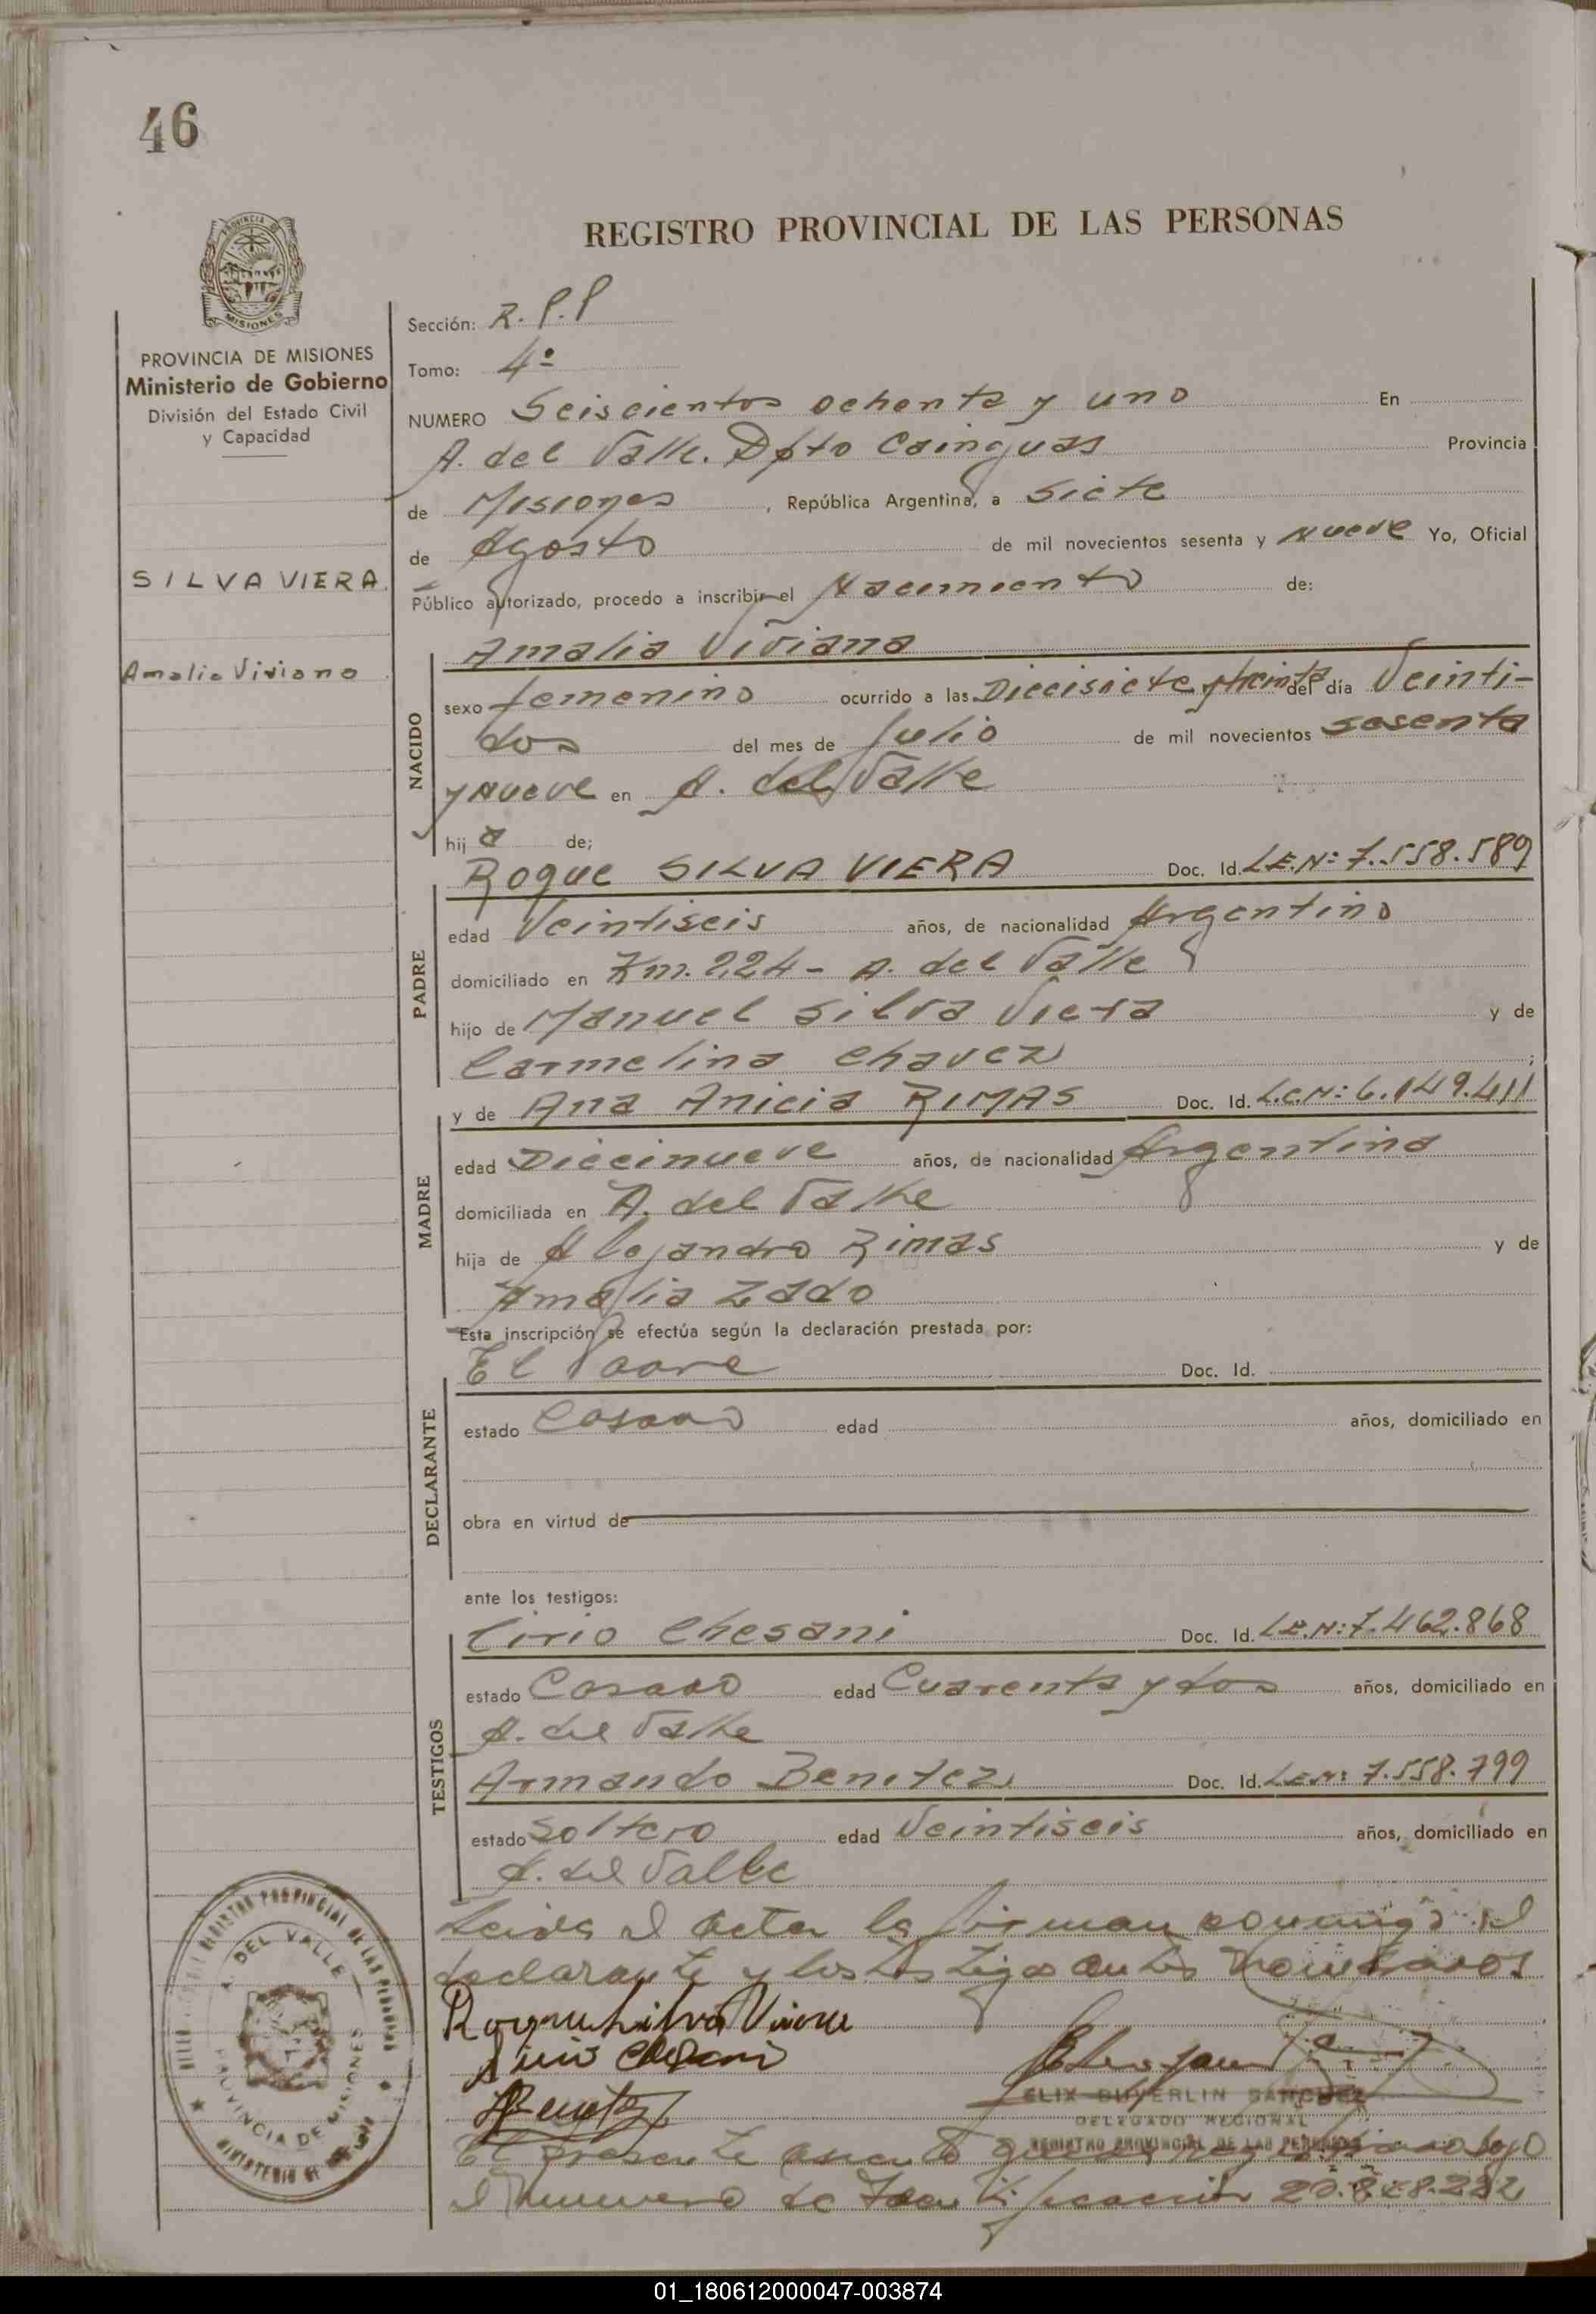 46
REGISTRO PROVINCIAL DE LAS PERSONAS
PROVINCIA
MISIONES
PROVINCIA DE MISIONES
Ministerio de Gobierno
División del Estado Civil
y Capacidad
SILVA VIERA
Amalia Viviana
Sección: R.P.P
Tomo: 4º
NUMERO Seiscientos ochenta y uno En
A. del Valle. Dpto Cainguas Provincia
de Misiones, República Argentina, a Siete
de Agosto de mil novecientos sesenta y nueve Yo, Oficial
Público autorizado, procedo a inscribir el Nacimiento de:
NACIDO
Amalia Viviana
sexo femenino ocurrido a las Diecisiete y treinta del día Veinti-
dos del mes de Julio de mil novecientos sesenta
y nueve en A. del Valle
hija de;
PADRE
Roque SILVA VIERA Doc. Id. L.E.N: 7.558.589
edad Veintiseis años, de nacionalidad Argentino
domiciliado en Km. 224 - A. del Valle
hijo de Manuel Silva Viera y de
Carmelina Chavez;
MADRE
y de Ana Anicia RIMAS Doc. Id. L.C.N: 6.149.411
edad Diecinueve años, de nacionalidad Argentina
domiciliada en A. del Valle
hija de Alejandro Rimas y de
Amalia Zado
Esta inscripción se efectúa según la declaración prestada por:
DECLARANTE
El Padre Doc. Id.
estado Casado edad años, domiciliado en
obra en virtud de
ante los testigos:
TESTIGOS
Cirio Chesani Doc. Id. L.E.N: 7.462.868
estado Casado edad Cuarenta y dos años, domiciliado en
A. del Valle
Armando Benitez Doc. Id. L.E.N: 7.558.799
estado Soltero edad Veintiseis años, domiciliado en
A. del Valle
Leida el acta la firman conmigo el
declarante y los testigos antes nombrados
Roque Silva Viera
Cirio Chesani
ABenitez
ELIX DUVERLIN SANCHEZ
DELEGADO REGIONAL
REGISTRO PROVINCIAL DE LAS PERSONAS
El presente asiento queda bajo
el numero de Identificación
REGISTRO PROVINCIAL DE LAS PERSONAS
A. DEL VALLE
PROVINCIA DE MISIONES
MINISTERIO DE
01_180612000047-003874